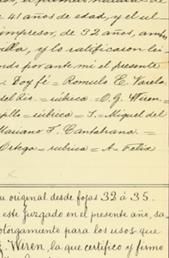 de 41 años de edad, y el ul
impresor, de 52 años, am
villa, y lo ratificaron le
ndo por ante mi el presente
Doy fé = Romulo E. Varela
del Rio. = rúbrica = O. G. Weren =
pllo = rúbrica = S. Miguel del
Mariano T. Cantabrana. =
Ortega = rubrica = A. Felix
u original desde fojas 32 á 35.
este juzgado en el presente año, sa
otorgamiento para los usos que
G. Weren, la que certifico y firmo